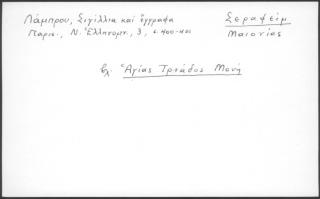 Λάμπρου, Σιγίλλια καὶ ἔγγραφα
Παρισ., Ν. Ἑλληνομν., 3, σ. 400-401
Σεραφείμ
Μαιονίας
βλ. Ἁγίας Τριάδος Μονή